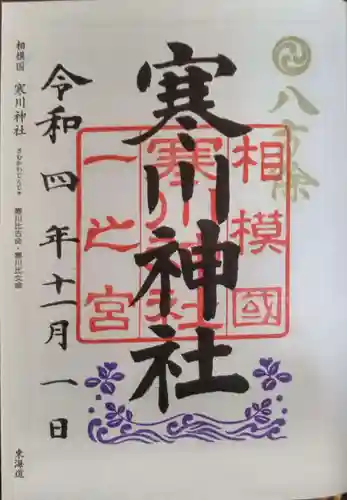 八方除
寒川神社
相模國
寒川神社
一之宮
令和四年十一月一日
相模国 寒川神社
寒川比古命・寒川比女命
東海道